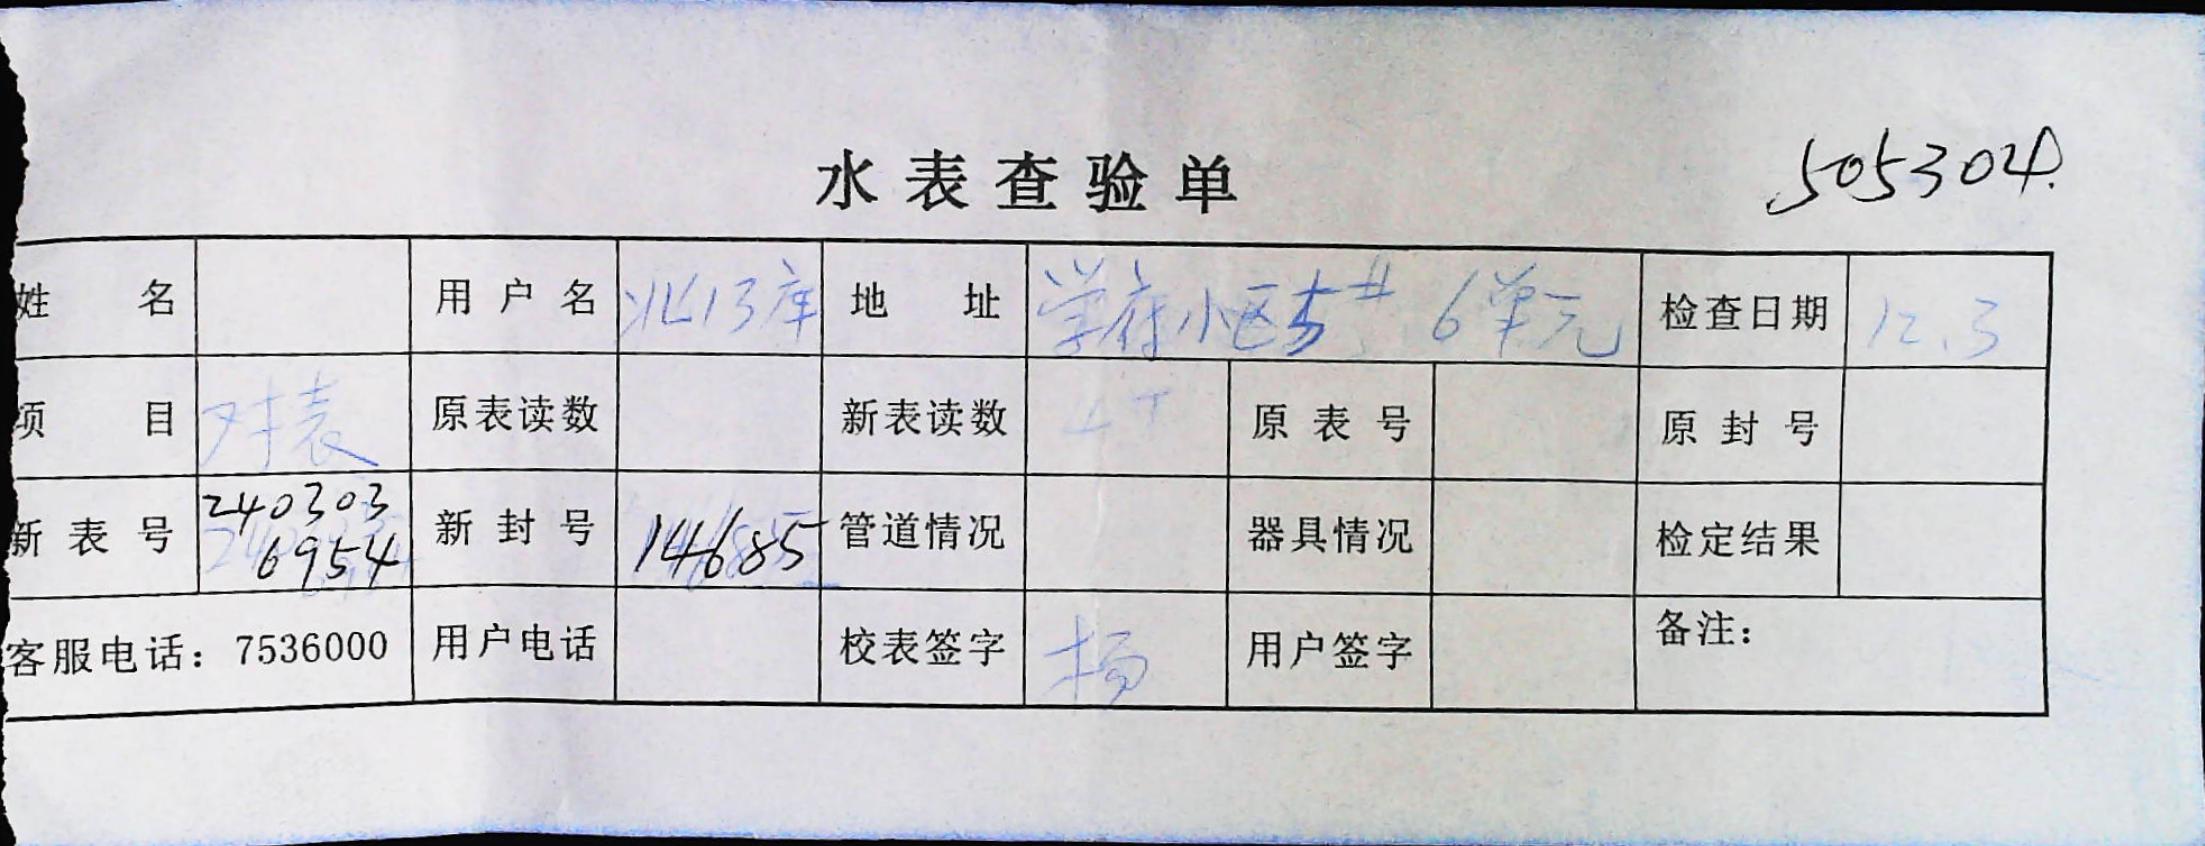 水表查验单
505304.
姓 名 用户名 北13库 地 址 学府小区5# 6单元 检查日期 12.3
项 目 对表 原表读数 新表读数 原表号 原封号
新表号 240303 6954 新封号 14685 管道情况 器具情况 检定结果
客服电话：7536000 用户电话 校表签字 杨 用户签字 备注：